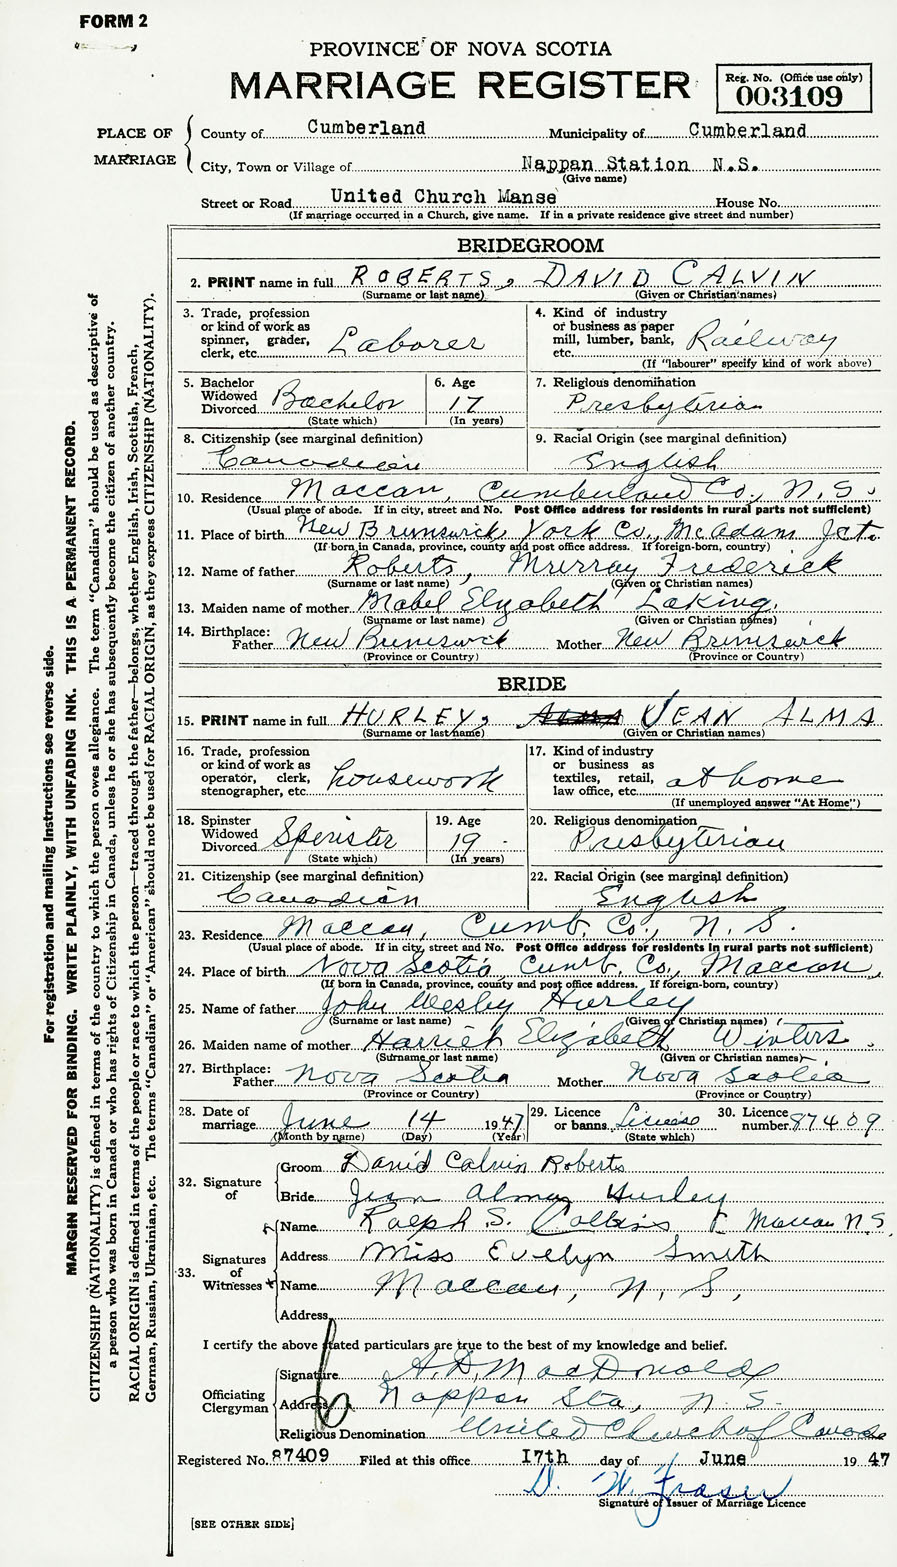 FORM 2
PROVINCE OF NOVA SCOTIA
MARRIAGE REGISTER
Reg. No. (Office use only)
003109
PLACE OF MARRIAGE
County of Cumberland Municipality of Cumberland
City, Town or Village of Nappan Station N.S.
(Give name)
Street or Road United Church Manse House No.
(If marriage occurred in a Church, give name. If in a private residence give street and number)
BRIDEGROOM
2. PRINT name in full ROBERTS, DAVID CALVIN
(Surname or last name) (Given or Christian names)
3. Trade, profession or kind of work as spinner, grader, clerk, etc. Laborer
4. Kind of industry or business as paper mill, lumber, bank, etc. Railway
(If "labourer" specify kind of work above)
5. Bachelor Widowed Divorced Bachelor
(State which)
6. Age 17
(In years)
7. Religious denomination
Presbyterian
8. Citizenship (see marginal definition)
Canadian
9. Racial Origin (see marginal definition)
English
10. Residence Maccan, Cumberland Co., N.S.
(Usual place of abode. If in city, street and No. Post Office address for residents in rural parts not sufficient)
11. Place of birth New Brunswick, York Co., McAdam Jct.
(If born in Canada, province, county and post office address. If foreign-born, country)
12. Name of father Roberts, Murray Frederick
(Surname or last name) (Given or Christian names)
13. Maiden name of mother Mabel Elizabeth Laking.
(Surname or last name) (Given or Christian names)
14. Birthplace: Father New Brunswick Mother New Brunswick
(Province or Country) (Province or Country)
BRIDE
15. PRINT name in full HURLEY, ALMA JEAN ALMA
(Surname or last name) (Given or Christian names)
16. Trade, profession or kind of work as operator, clerk, stenographer, etc. housework
17. Kind of industry or business as textiles, retail, law office, etc. at home
(If unemployed answer "At Home")
18. Spinster Widowed Divorced Spinster
(State which)
19. Age 19
(In years)
20. Religious denomination
Presbyterian
21. Citizenship (see marginal definition)
Canadian
22. Racial Origin (see marginal definition)
English
23. Residence Maccan, Cumb. Co., N.S.
(Usual place of abode. If in city, street and No. Post Office address for residents in rural parts not sufficient)
24. Place of birth Nova Scotia, Cumb. Co., Maccan,
(If born in Canada, province, county and post office address. If foreign-born, country)
25. Name of father John Wesley Hurley
(Surname or last name) (Given or Christian names)
26. Maiden name of mother Harriet Elizabeth Winters.
(Surname or last name) (Given or Christian names)
27. Birthplace: Father Nova Scotia Mother Nova Scotia
(Province or Country) (Province or Country)
28. Date of marriage June 14 1947
(Month by name) (Day) (Year)
29. Licence or banns License
(State which)
30. Licence number 87409
32. Signature of
Groom David Calvin Roberts
Bride Jean Alma Hurley
33. Signatures of Witnesses
Name Ralph S. Collins Maccan N.S.
Address Miss Evelyn Smith
Name Maccan, N.S.,
Address
I certify the above stated particulars are true to the best of my knowledge and belief.
Officiating Clergyman
Signature A.D. MacDonald
Address Nappan Sta, N.S.
Religious Denomination United Church of Canada
Registered No. 87409 Filed at this office 17th day of June 1947
D. W. Fraser
Signature of Issuer of Marriage Licence
[SEE OTHER SIDE]
For registration and mailing instructions see reverse side.
MARGIN RESERVED FOR BINDING. WRITE PLAINLY, WITH UNFADING INK. THIS IS A PERMANENT RECORD.
CITIZENSHIP (NATIONALITY) is defined in terms of the country to which the person owes allegiance. The term "Canadian" should be used as descriptive of
a person who was born in Canada or who has rights of Citizenship in Canada, unless he or she has subsequently become the citizen of another country.
RACIAL ORIGIN is defined in terms of the people or race to which the person—traced through the father—belongs, whether English, Irish, Scottish, French,
German, Russian, Ukrainian, etc. The terms "Canadian" or "American" should not be used for RACIAL ORIGIN, as they express CITIZENSHIP (NATIONALITY).